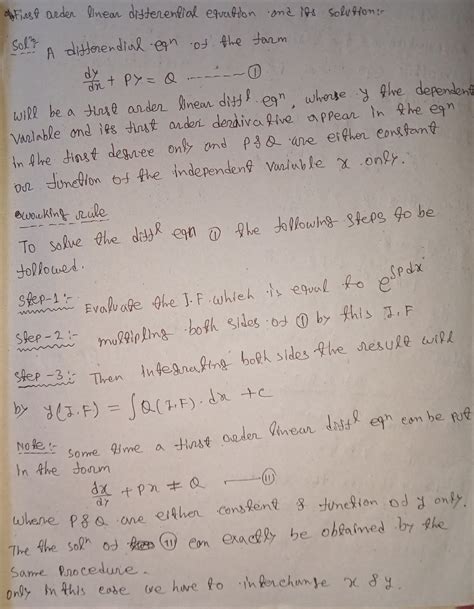 First order linear differential equation and its solution:-
Soln:- A differendial eqn of the form
dy/dx + Py = Q ------- (1)
will be a first order linear diffl eqn, whose y the dependent
variable and its first order derivative appear in the eqn
In the first degree only and P & Q are either constant
or function of the independent variable x only.
working rule
To solve the diffl eqn (1) the following steps to be
followed.
Step-1:- Evaluate the I.F which is equal to e^∫pdx
Step-2:- multipling both sides of (1) by this I.F
Step-3:- Then Integrating both sides the result will
by y(I.F) = ∫Q(I.F).dx + c
Note:- some time a first order linear diffl eqn can be put
In the form
dx/dy + Px ≠ Q — (11)
where P & Q are either constent & function of y only.
The the soln of (11) can exactly be obtained by the
same Procedure.
only In this case we have to interchange x & y.